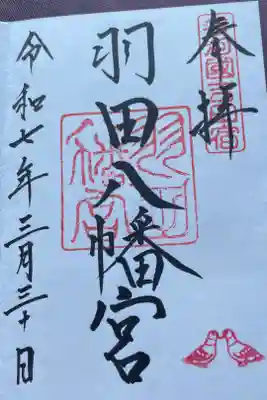 奉拝
羽田八幡宮
令和七年三月三十日